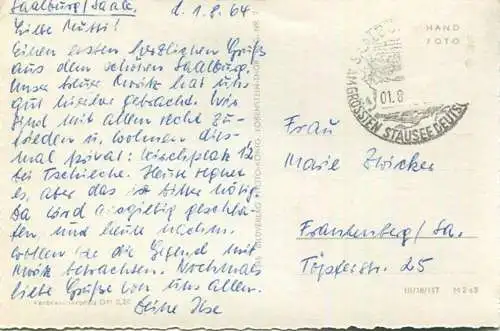 Saalburg/Saale, d. 1.8.64
Liebe Mutti!
Einen ersten herzlichen Gruß
aus dem schönen Saalburg.
Unser treuer hat uns
gut hierher gebracht. Wir
sind mit allem recht zu-
frieden u. wohnen dies-
mal privat: Kirchplatz 12
bei Tschieche. Heute regnet
es, aber das ist bitter nötig.
Da wird ausgiebig geschla-
fen, und heute nachm.
wollen wir die Gegend mit
betrachten. Nochmals
liebe Grüße von uns allen.
Deine Ilse
Verbraucherpreis DM 0,20
HAND
FOTO
SAALBURG
01.8
AM GRÖSSTEN STAUSEE DEUTSCHL
Frau
Marie
Frankenberg/Sa.
Töpferstr. 25
III/18/157 M 268